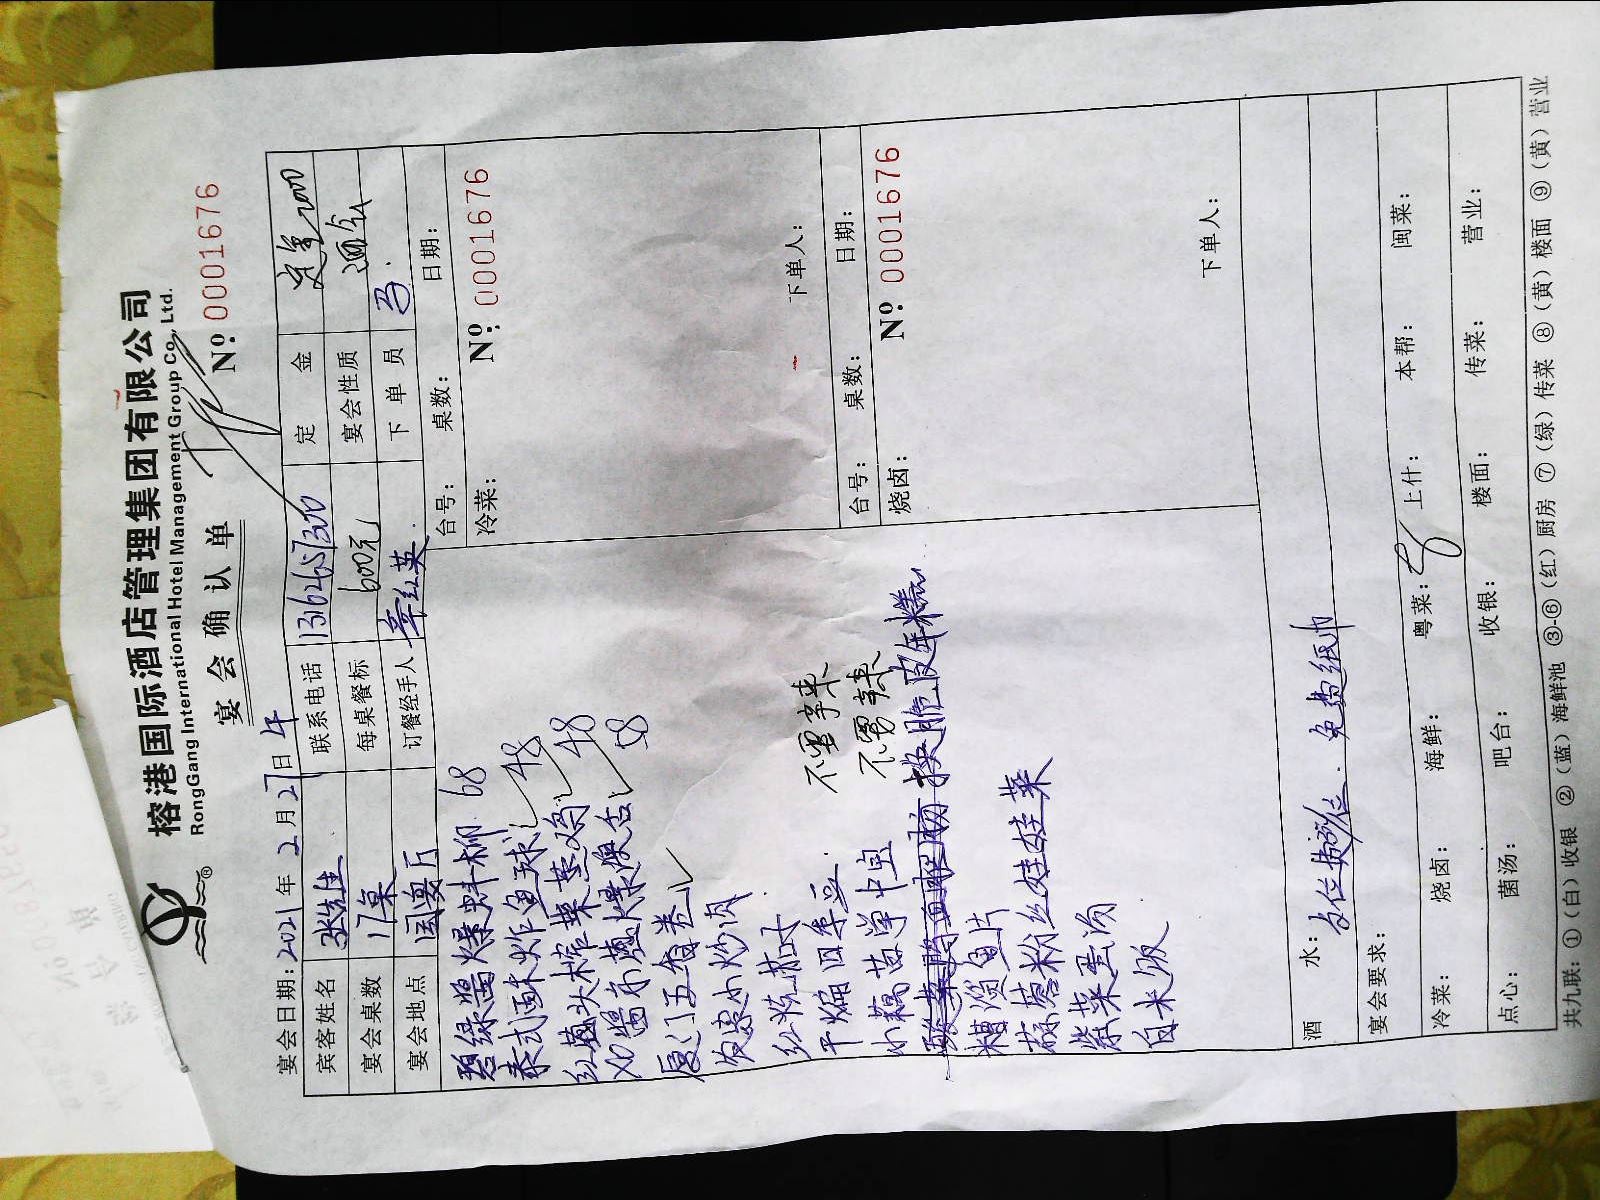 榕港国际酒店管理集团有限公司
RongGang International Hotel Management Group Co., Ltd.
®
宴会确认单
Nº: 0001676
宴会日期: 2021年2月27日 午
宾客姓名 联系电话 定金 定金2000
宴会桌数 1桌 每桌餐标 600元 宴会性质
宴会地点 订餐经手人 章红英 下单员
台号: 桌数: 日期:
冷菜: Nº: 0001676
碧绿酱爆蚌柳 68
泰式酥炸鱼球 48
红葱头榨菜蒸鸡 48
XO酱京葱爆 58
厦门五香卷
农家小炒肉
红烧茄子 不要辣
干煸四季豆 不要辣
下单人:
台号: 桌数: 日期:
烧卤: Nº: 0001676
换脆皮年糕
糟溜鱼片
蒜蓉粉丝娃娃菜
紫菜蛋汤
白米饭
下单人:
酒水:
宴会要求: 免费纸巾
冷菜: 烧卤: 海鲜: 粤菜: 上什: 本帮: 闽菜:
点心: 菌汤: 吧台: 收银: 楼面: 传菜: 营业:
共九联: ①(白)收银 ②(蓝)海鲜池 ③-⑥(红)厨房 ⑦(绿)传菜 ⑧(黄)楼面 ⑨(黄)营业